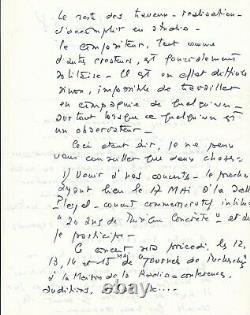 Le reste des travaux - réalisation -
s'accomplit en studio -
Le compositeur, tout comme
d'autres créateurs, est foncièrement
solitaire - Il est en effet difficile
sinon, impossible de travailler
en compagnie de quelqu'un -
surtout lorsque ce quelqu'un est
un observateur -
Ceci étant dit, je ne peux
vous conseiller que deux choses -
1) Venir à nos concerts - le prochain
ayant lieu le 17 MAI à la Salle
Pleyel - concert commémoratif intitulé
"20 ans de Musique Concrète" et
je participe -
Ce concert sera précédé, les 12,
13, 14 et 15 MAI de "Journées de
à la Maison de la Radio - conférences,
auditions,
thecoins.com